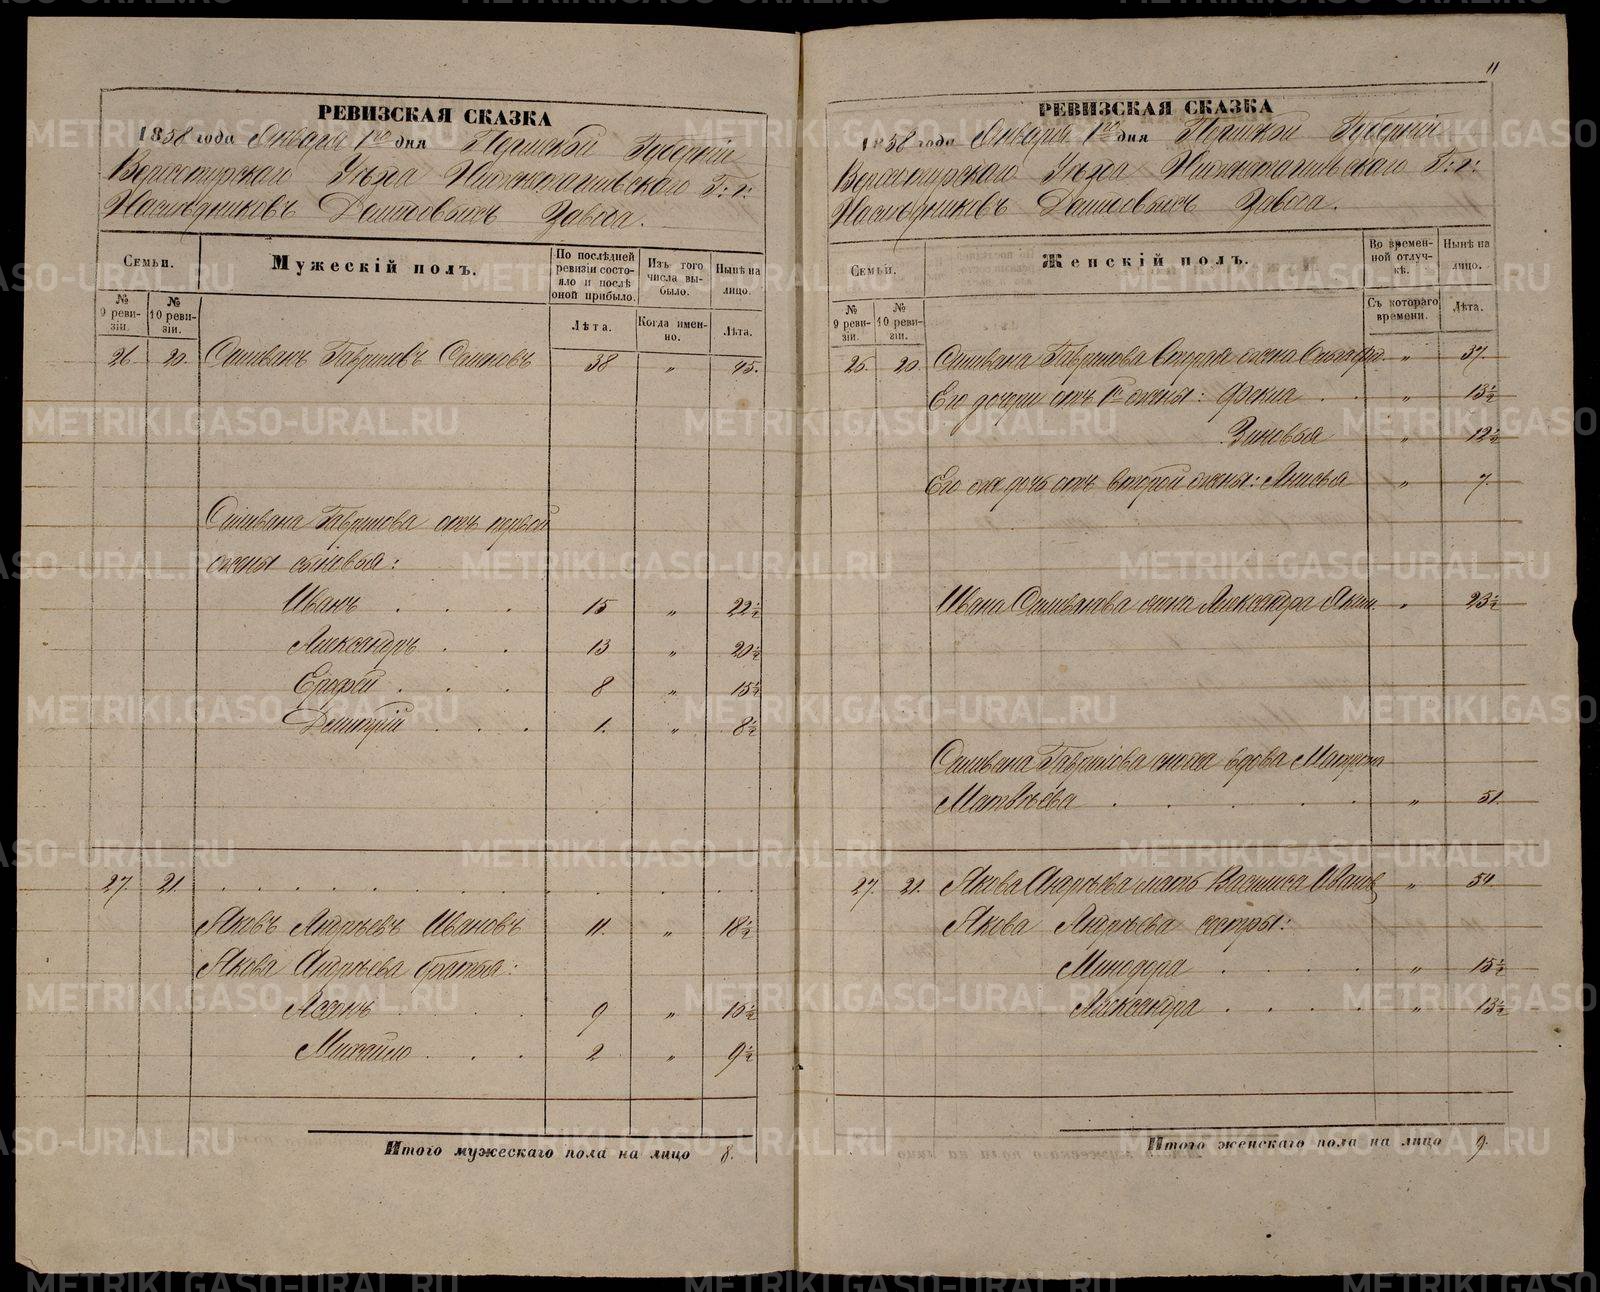 11
РЕВИЗСКАЯ СКАЗКА
1858 года Января 1го дня Пермской Губерніи
Верхотурскаго Уѣзда Нижнетагильскаго Г: г:
Наслѣдниковъ Демидовыхъ Завода.
Семьи.
Мужескій полъ.
По послѣдней ревизіи состояло и послѣ оной прибыло.
Изъ того числа выбыло.
Нынѣ на лицо.
№ 9 ревизіи.
№ 10 ревизіи.
Лѣта.
Когда именно.
Лѣта.
26. 20. Селиванъ Гавриловъ 38 „ 45.
Селивана Гаврилова отъ первой
жены сыновья:
Иванъ . . . 15 „ 22½
Александръ . . 13 „ 20½
Ерофей . . . 8 „ 15½
Дмитрій . . . 1. „ 8½
27. 21. . . . . . . . . . .
Яковъ Андреевъ Ивановъ 11. „ 18½
Якова Андреева братья:
9 „ 16½
Михайло . . . 2 „ 9½
Итого мужескаго пола на лицо 8.
РЕВИЗСКАЯ СКАЗКА
1858 года Января 1го дня Пермской Губерніи
Верхотурскаго Уѣзда Нижнетагильскаго Г: г:
Наслѣдниковъ Демидовыхъ Завода.
Семьи.
Женскій полъ.
Во временной отлучкѣ.
Нынѣ на лицо.
№ 9 ревизіи.
№ 10 ревизіи.
Съ котораго времени.
Лѣта.
26. 20. Селивана Гаврилова вторая жена „ 37.
Его дочери отъ 1й жены: Фекла . . „ 13½
Зиновья „ 12½
Его же дочь отъ второй жены: Анисья „ 7.
Ивана Селиванова жена Александра „ 23½
Селивана Гаврилова сноха вдова Матрена
Матвѣева . . . . . „ 51.
27. 21. Якова Андреева мать Василиса Иванов „ 54.
Якова Андреева сестры:
Минодора . . . . „ 15½
Александра . . . . „ 13½
Итого женскаго пола на лицо 9.
METRIKI.GASO-URAL.RU